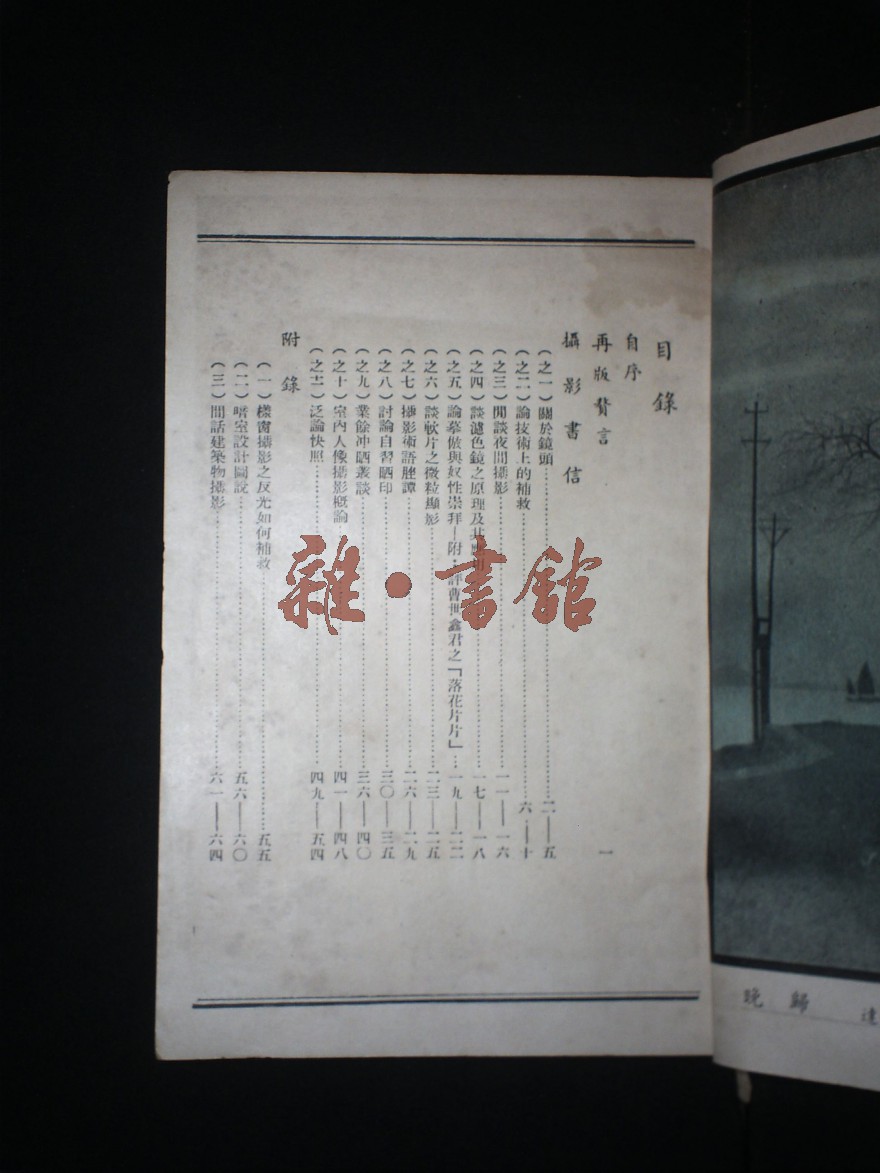 目錄
自序
再版贅言 一
攝影書信
(之一)關於鏡頭……二——五
(之二)論技術上的補救……六——十
(之三)閒談夜間攝影……一一——一六
(之四)談濾色鏡之原理及其應用……一七——一八
(之五)論摹倣與奴性崇拜—附·評曹世鑫君之「落花片片」…一九——二二
(之六)談軟片之微粒顯影……二三——二五
(之七)攝影術語脞譚……二六——二九
(之八)討論自習晒印……三〇——三五
(之九)業餘冲晒叢談……三六——四〇
(之十)室內人像攝影概論……四一——四八
(之十一)泛論快照……四九——五四
附錄
(一)樣窗攝影之反光如何補救……五五
(二)暗室設計圖說……五六——六〇
(三)閒話建築物攝影……六一——六四
雜·書館
晚歸 達